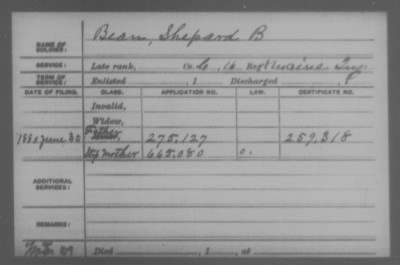 Bean, Shepard B
NAME OF SOLDIER:
SERVICE: Late rank, Co. G, 16 Reg't Maine Inf.
TERM OF SERVICE: Enlisted , 1 Discharged , 1
DATE OF FILING. CLASS. APPLICATION NO. LAW. CERTIFICATE NO.
Invalid,
Widow,
1880 June 30 Father 275,127 259,318
Mother 665,080 O.
ADDITIONAL SERVICES:
REMARKS:
Died , 1 , at